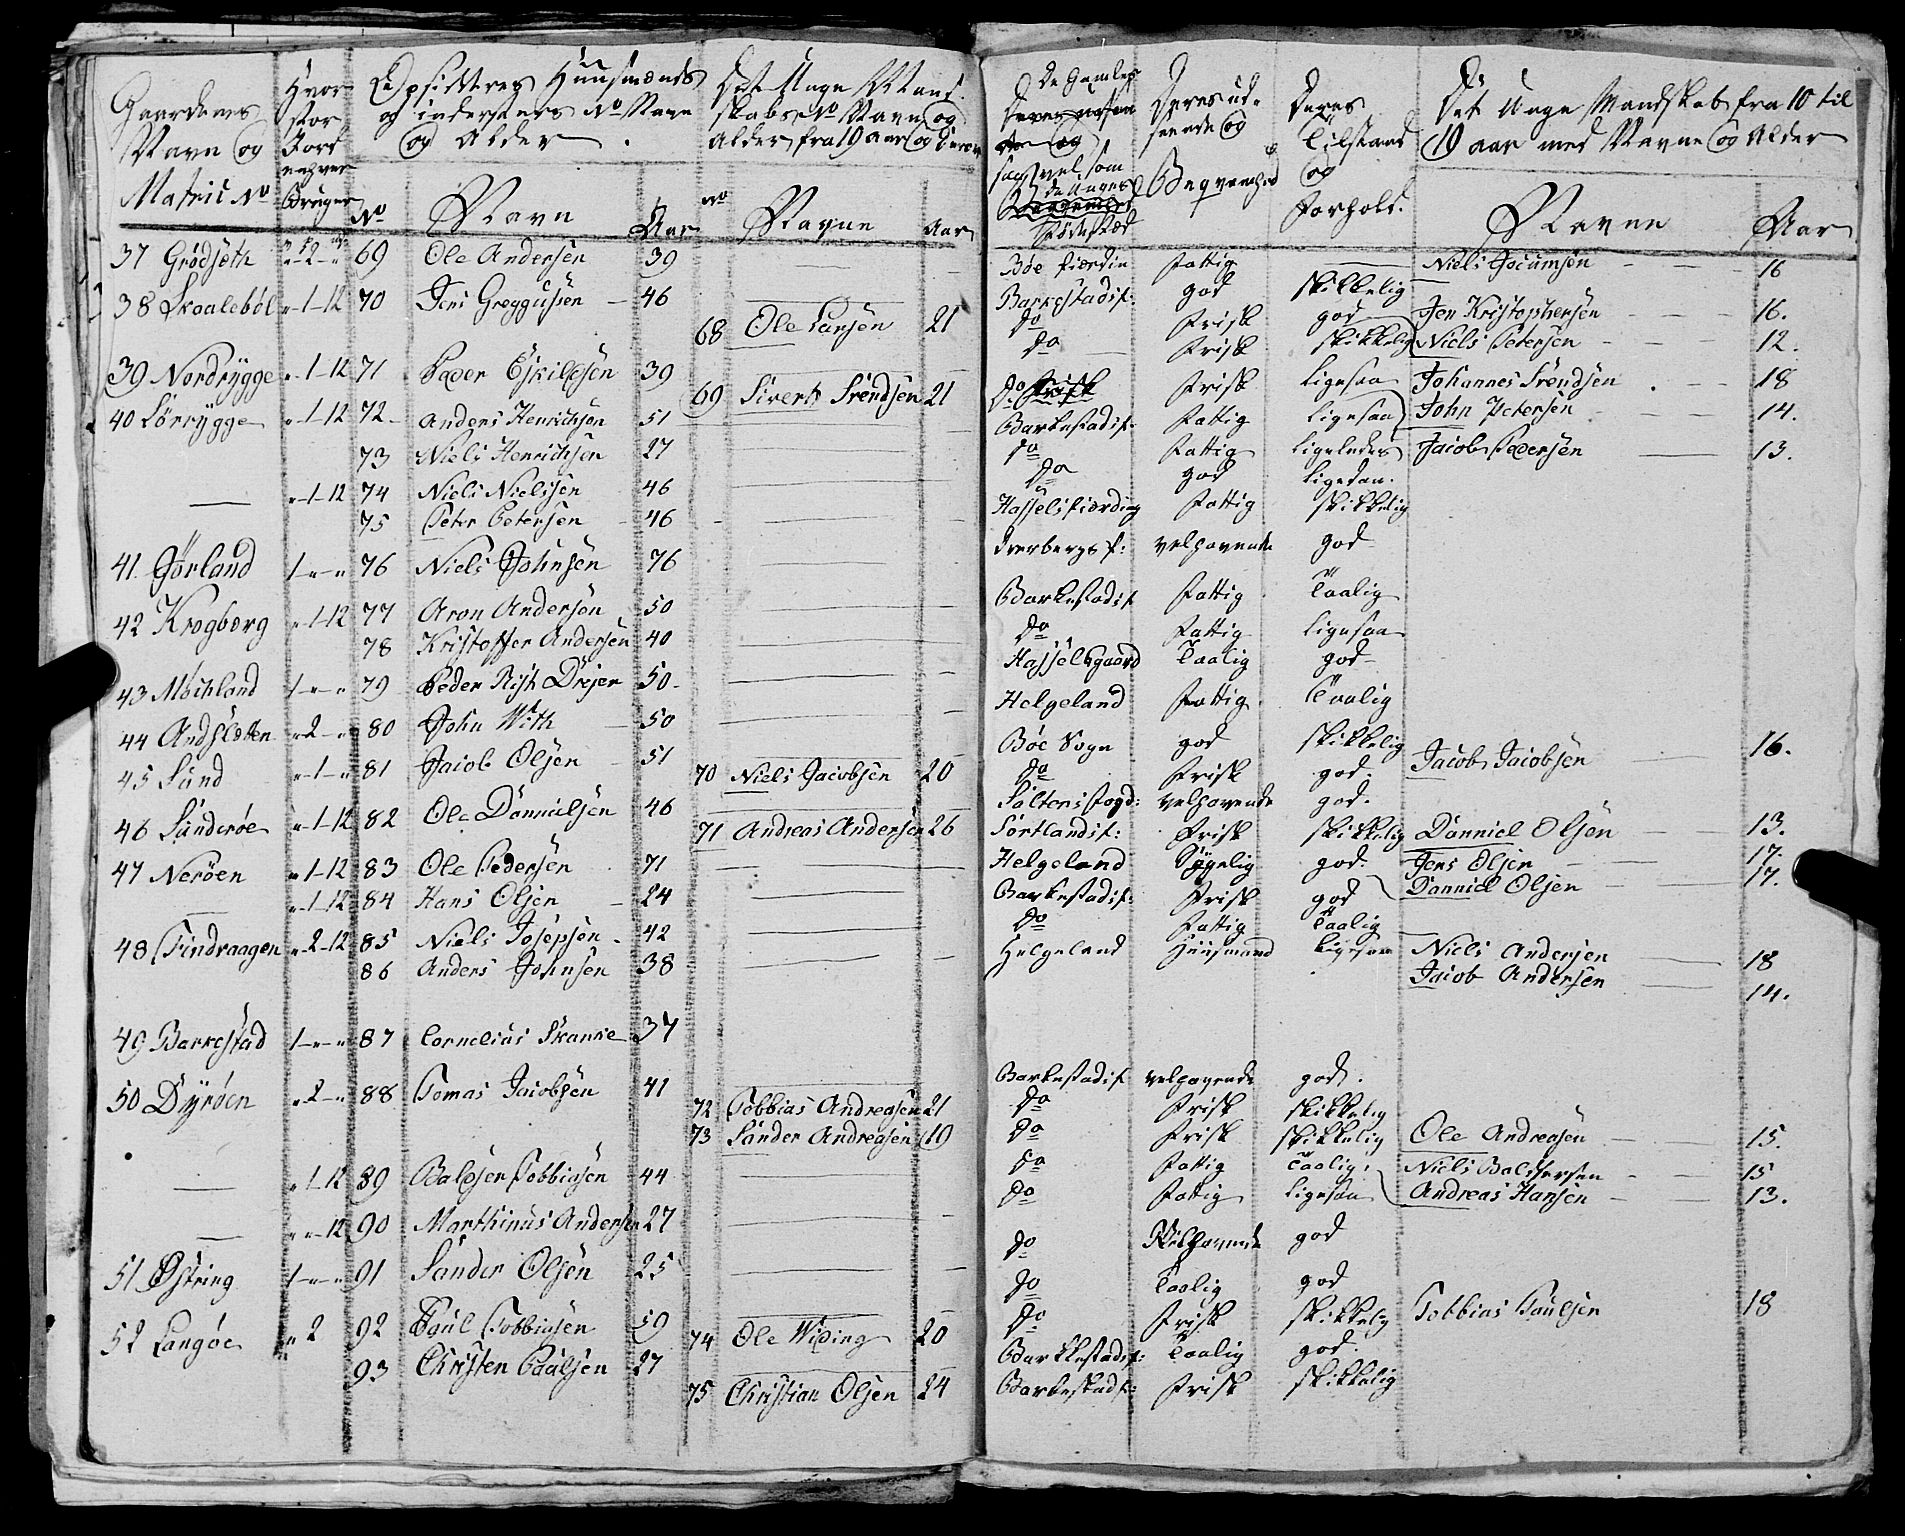 Gaardenes Navn og Matric No
Hvor stor Jord enhver Bruger
Opsidderes Huusmænds og indersters No Navn og Alder
Det Unge Mandskabs No Navn og Alder fra 19 aar og derov
No Navn Aar No Navne Aar
37 Grödseth 69 Ole Andersen 39
38 Skoaleböl " 1-12 70 Jens Greggusen 46
68 Ole Larsen 21
39 Nordrÿgge " 1-12 71 Peder Eskildsen 39
69 Siverts Svendsen 21
40 Sörrÿgge " 1-12 72 Anders Henrichsen 51
73 Niels Henrichsen 27
— " 1-12 74 Niels Nielssen 46
75 Peter Petersen 46
41 Jörland 1 " " 76 Niels Johnsen 76
42 Krogberg " 1-12 77 Aron Andersen 50
78 Kristoffer Andersen 40
43 Mochland 1 " " 79 Peder Rist Drejer 50
44 Andsletten " 2 " 80 John With 50
45 Sund " 1 " 81 Jacob Olsen 51
70 Niels Jacobsen 20
46 Sunderøe " 1-12 82 Ole Danniелsen 46
71 Andreas Andersen 26
47 Neröen " 1-12 83 Ole Pedersen 71
— " 1-12 84 Hans Olsen 24
48 Tindraagen " 2-12 85 Niels Josepsen 42
86 Anders Johnsen 38
49 Barkestad 1 " " 87 Cornelius Skanke 37
50 Dyröen " 2 " 88 Tomas Jacobsen 41
72 Tobbias Andreasen 21
73 Sander Andreasen 19
— " 1-12 89 Baldser Tobbiasen 44
— " " 12 90 Marthinus Andersen 27
51 Østring 1 " " 91 Sander Olsen 25
52 Langøe " 2 92 Paul Tobbiasen 59
74 Ole Widing 20
93 Christen Paulsen 27
75 Christian Olsen 24
De Gamles og saavel som de Unges Fødested
Deres udseende og Beqvemhed
Deres Tilstand og Forhold.
Det Unge Mandskab fra 10 til 19 aar med Navne og Alder
Navne Aar
Böe fierdin fattig — Niels Jocumsen 16
Barkestads f: god skikkelig
do frisk god Jen Kristophersen 16.
do frisk skikkelig Niels Petersen 12.
do frisk ligesaa Johannes Svendsen 18
Barkestads f: fattig ligesaa John Petersen 14.
do fattig ligeledes Jacob Pedersen 13.
do god ligedan.
Hassels fierding fattig skikkelig
Dverbergs f: velhavende god
Barkestads f fattig taalig
do fattig ligesaa
Hasselsgaard taalig god
Helgeland fattig taalig
Böe Sogn god skikkelig Jacob Jacobsen 16.
do frisk god.
Saltens fogd: velhavende god.
Sortlands f: frisk skikkelig Danniel Olsen 13.
Helgeland sÿgelig god Jens Olsen 17.
Barkestads f: frisk god Danniel Olsen 17.
do fattig taalig
Helgeland Huusmand ligesaa Niels Andersen 18
Jacob Andersen 14.
Barkestads f velhavende god.
do frisk skikkelig
do frisk skikkelig Ole Andreasen 15.
do fattig taalig. Niels Baldsersen 15
do fattig ligesaa Andreas Hansen 13.
do Velhavende god
do taalig god
do frisk skikkelig Tobbias Paulsen 18
Barkkestads f: taalig god.
Barkestads f: frisk skikkelig